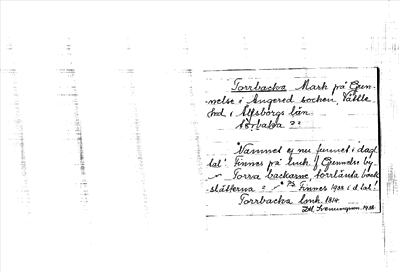 Torrbacka Mark på Gun-
nelse i Angered socken, Vättle
hd i Älfsborgs län.
Namnet ej nu funnet i dagl.
tal. Finnes på link. f. Gunnelse by.
Torra backarne, torrlända back
slätterna Finnes 1938 i d. tal!
Torrbacka lmk. 1814
1938